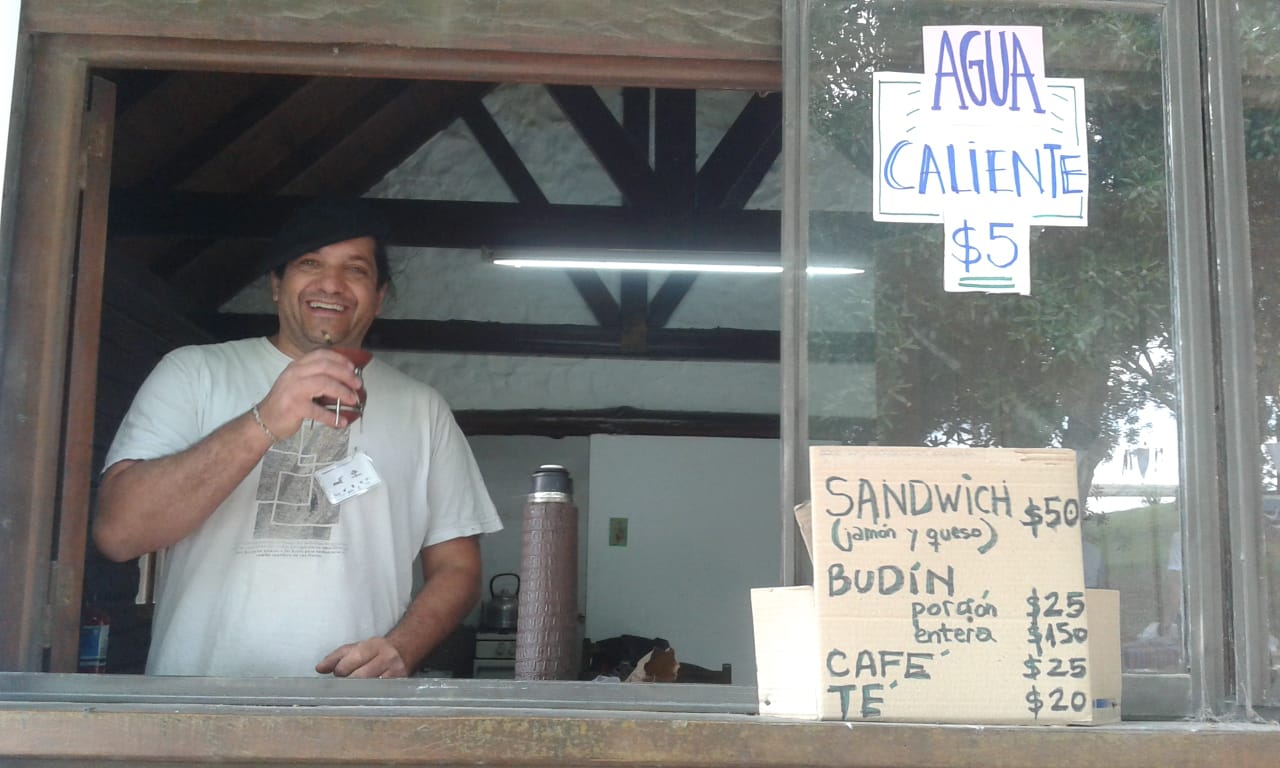 AGUA
CALIENTE
$5
SANDWICH $50
(jamón y queso)
BUDÍN
porción $25
entera $150
CAFÉ $25
TÉ $20